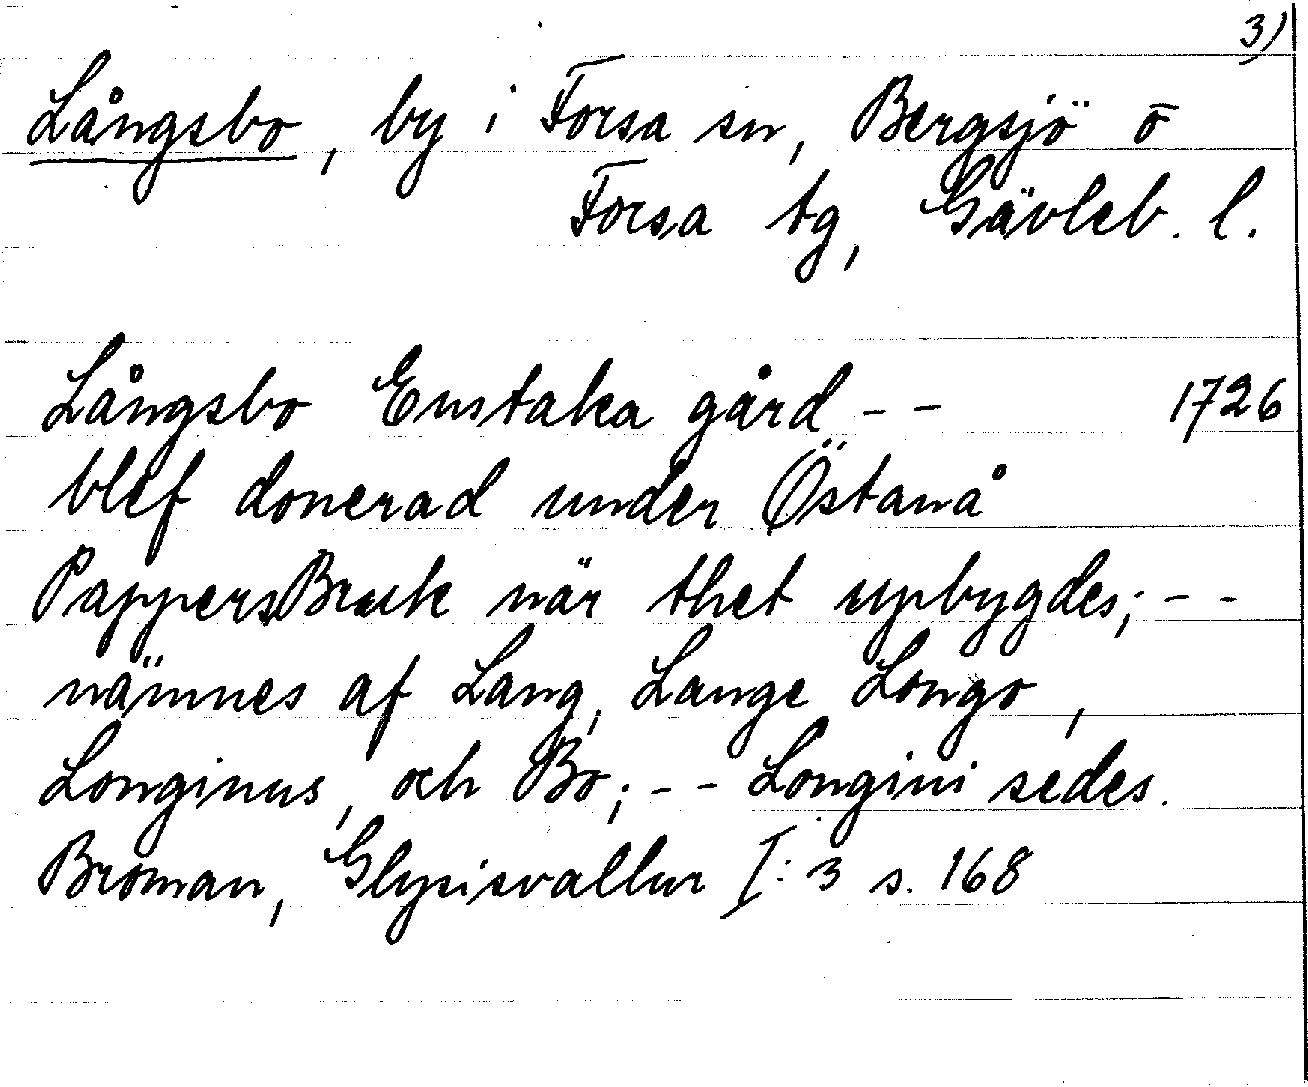 3)
Långsbo, by i Forsa sn, Bergsjö o
Forsa tg, Gävleb. l.
Långsbo Enstaka gård - - 1726
blef donerad under Östanå
PappersBruk när thet upbygdes; - -
nämnes af Lang, Lange Longo,
Longinus, och Bo; - - Longini sedes.
Broman, Glysisvallur I: 3 s. 168